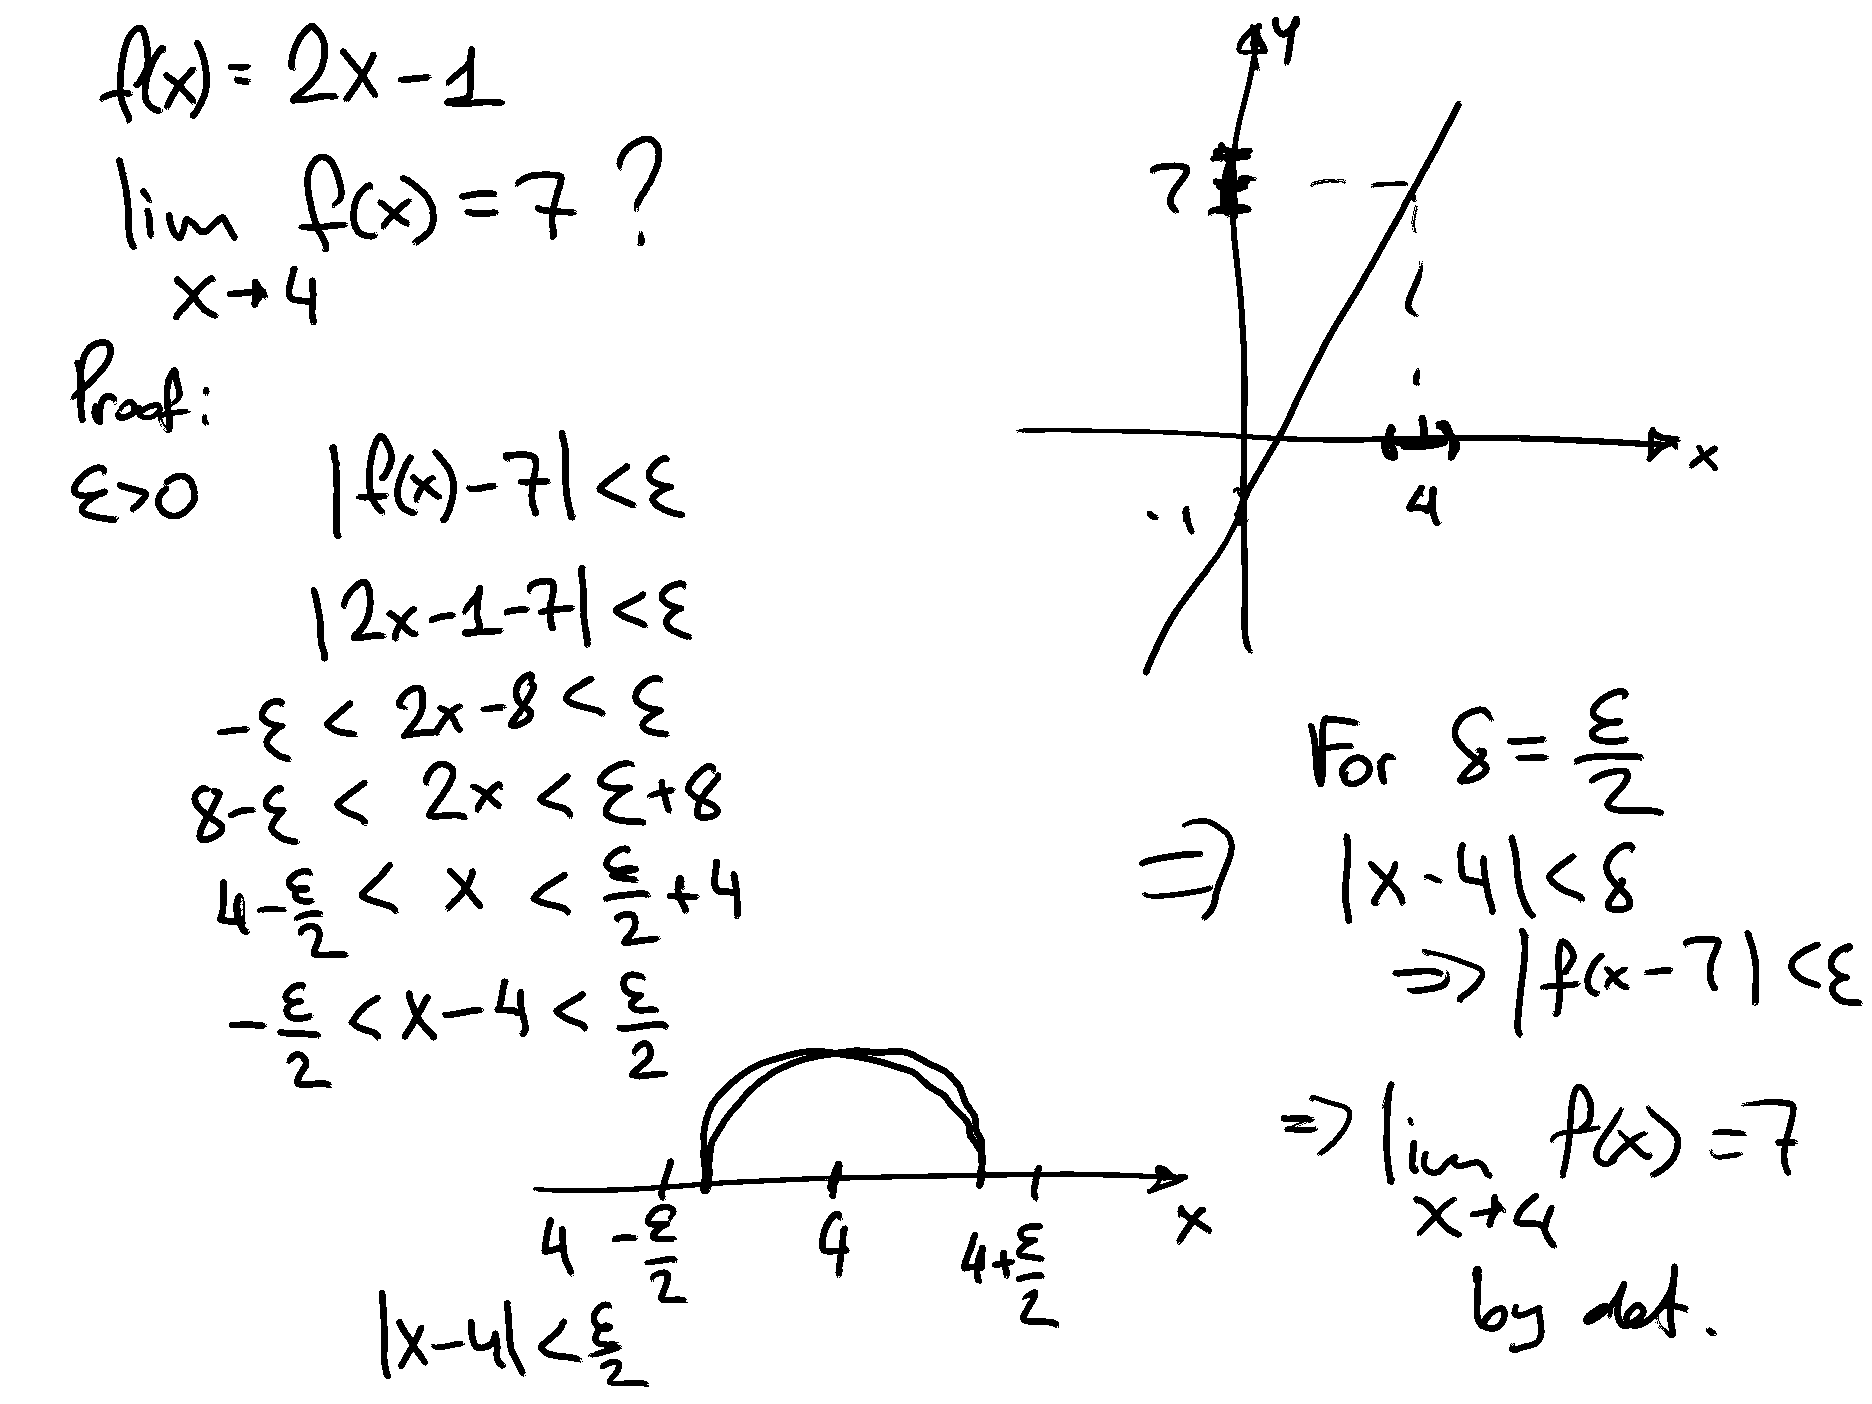 f(x) = 2x - 1
lim f(x) = 7 ?
x → 4
Proof:
ε > 0 |f(x) - 7| < ε
|2x - 1 - 7| < ε
-ε < 2x - 8 < ε
8 - ε < 2x < ε + 8
4 - ε/2 < x < ε/2 + 4
-ε/2 < x - 4 < ε/2
x
4 - ε/2 4 4 + ε/2
|x - 4| < ε/2
y
7
x
4
-1
For δ = ε/2
⇒ |x - 4| < δ
⇒ |f(x - 7| < ε
⇒ lim f(x) = 7
x → 4
by def.